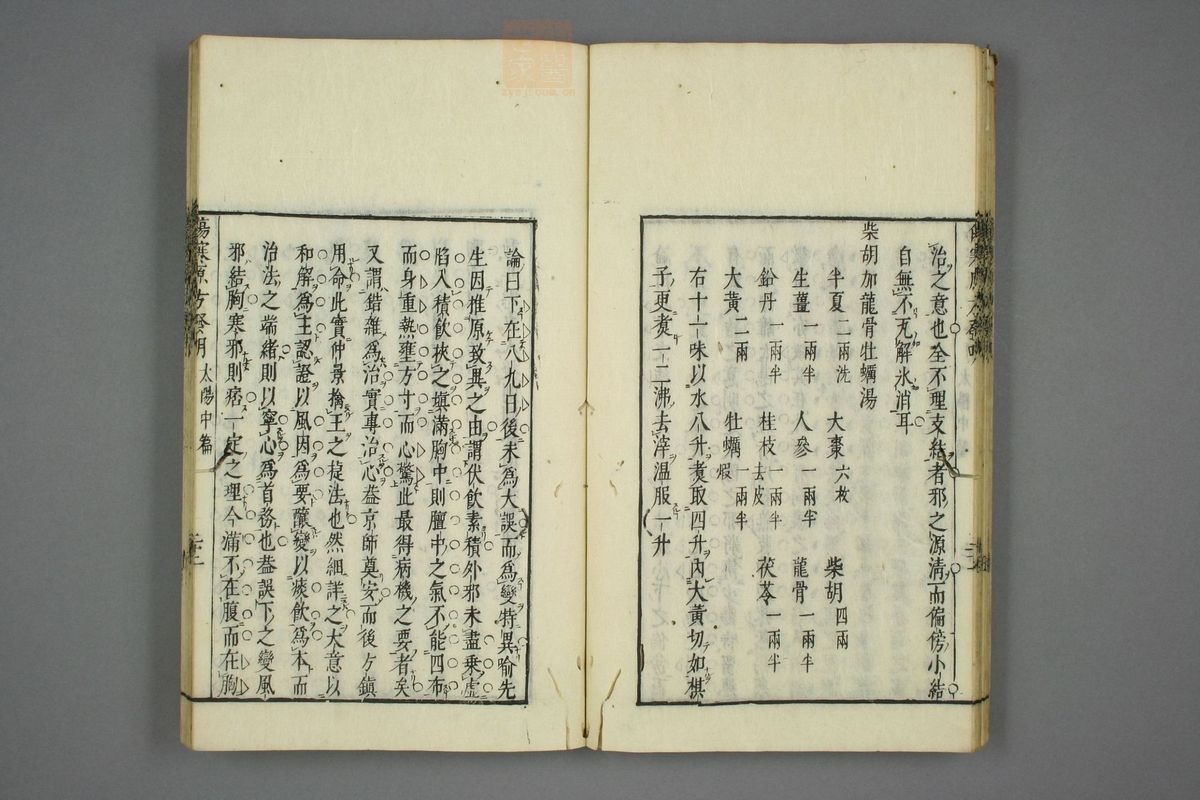 治之意也全不理支結者邪之源清而偏傍小結
自無不瓦解氷消耳
柴胡加龍骨牡蠣湯
半夏二兩洗 大棗六枚 柴胡四兩
生薑一兩半 人參一兩半 龍骨一兩半
鉛丹一兩半 桂枝去皮一兩半 茯苓一兩半
大黄二兩 牡蠣煆一兩半
右十一味以水八升煮取四升内大黄切如棋
子更煮一二沸去滓温服一升
論曰下在八九日後未為大誤而為變特異喻先
生因推原致異之由謂伏飲素積外邪未盡乗虚
陷入積飲挾之填滿胸中則膻中之氣不能四布
而身重熱壅方寸而心驚此最得病機之要者矣
又謂錯雜為治實專治心葢京師奠安而後方鎮
用命此實仲景擒王之㨗法也然細詳之大意以
和解為主認證以風因為要釀變以痰飲為本而
治法之端緒則以寧心為首務也葢誤下之變風
邪結胸寒邪則痞一定之理今滿不在腹而在胸
傷寒原方發明 太陽中篇